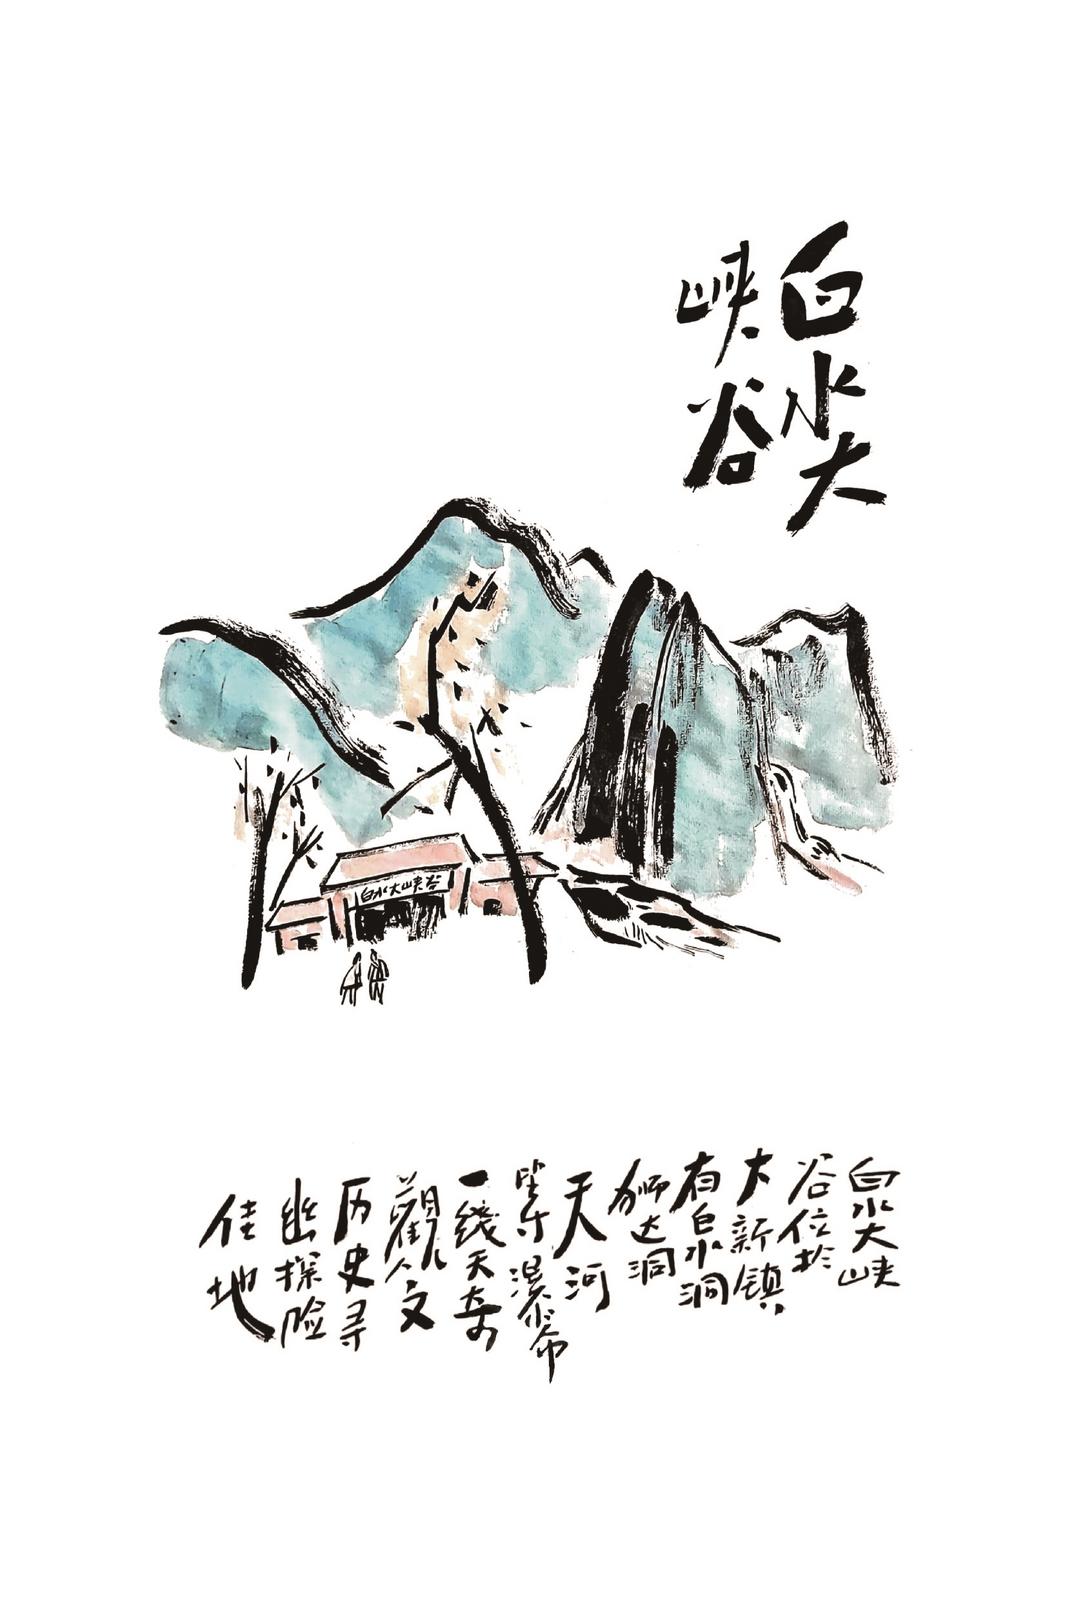 白水大
峡谷
白水大峡谷
白水大峡
谷位於
大新镇
有白水洞
狮达洞
天河
瀑布
一线天奇
觀人文
历史寻
幽探险
佳地